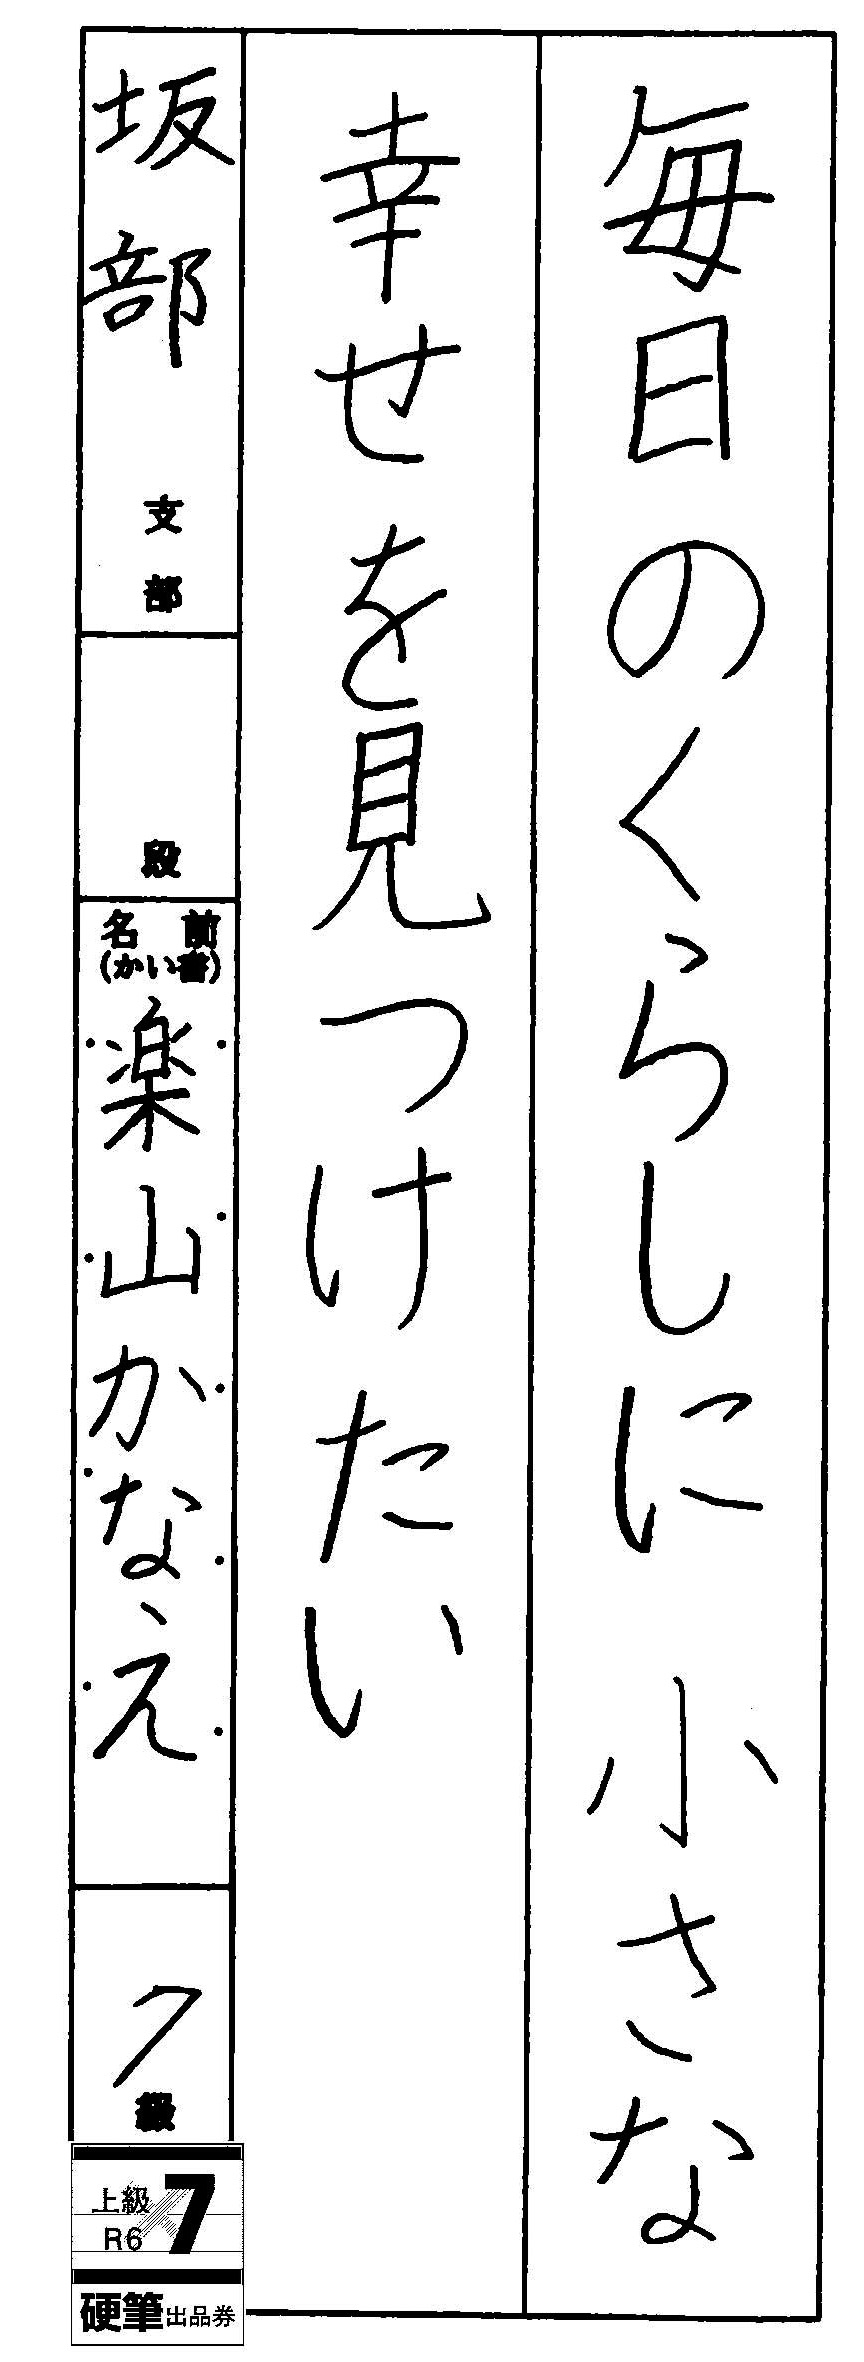 毎日のくらしに 小さな
幸せを見つけたい
坂部 支部
段
名前
(かい書)
楽山かなえ
7級
上級 7
R6
硬筆出品券